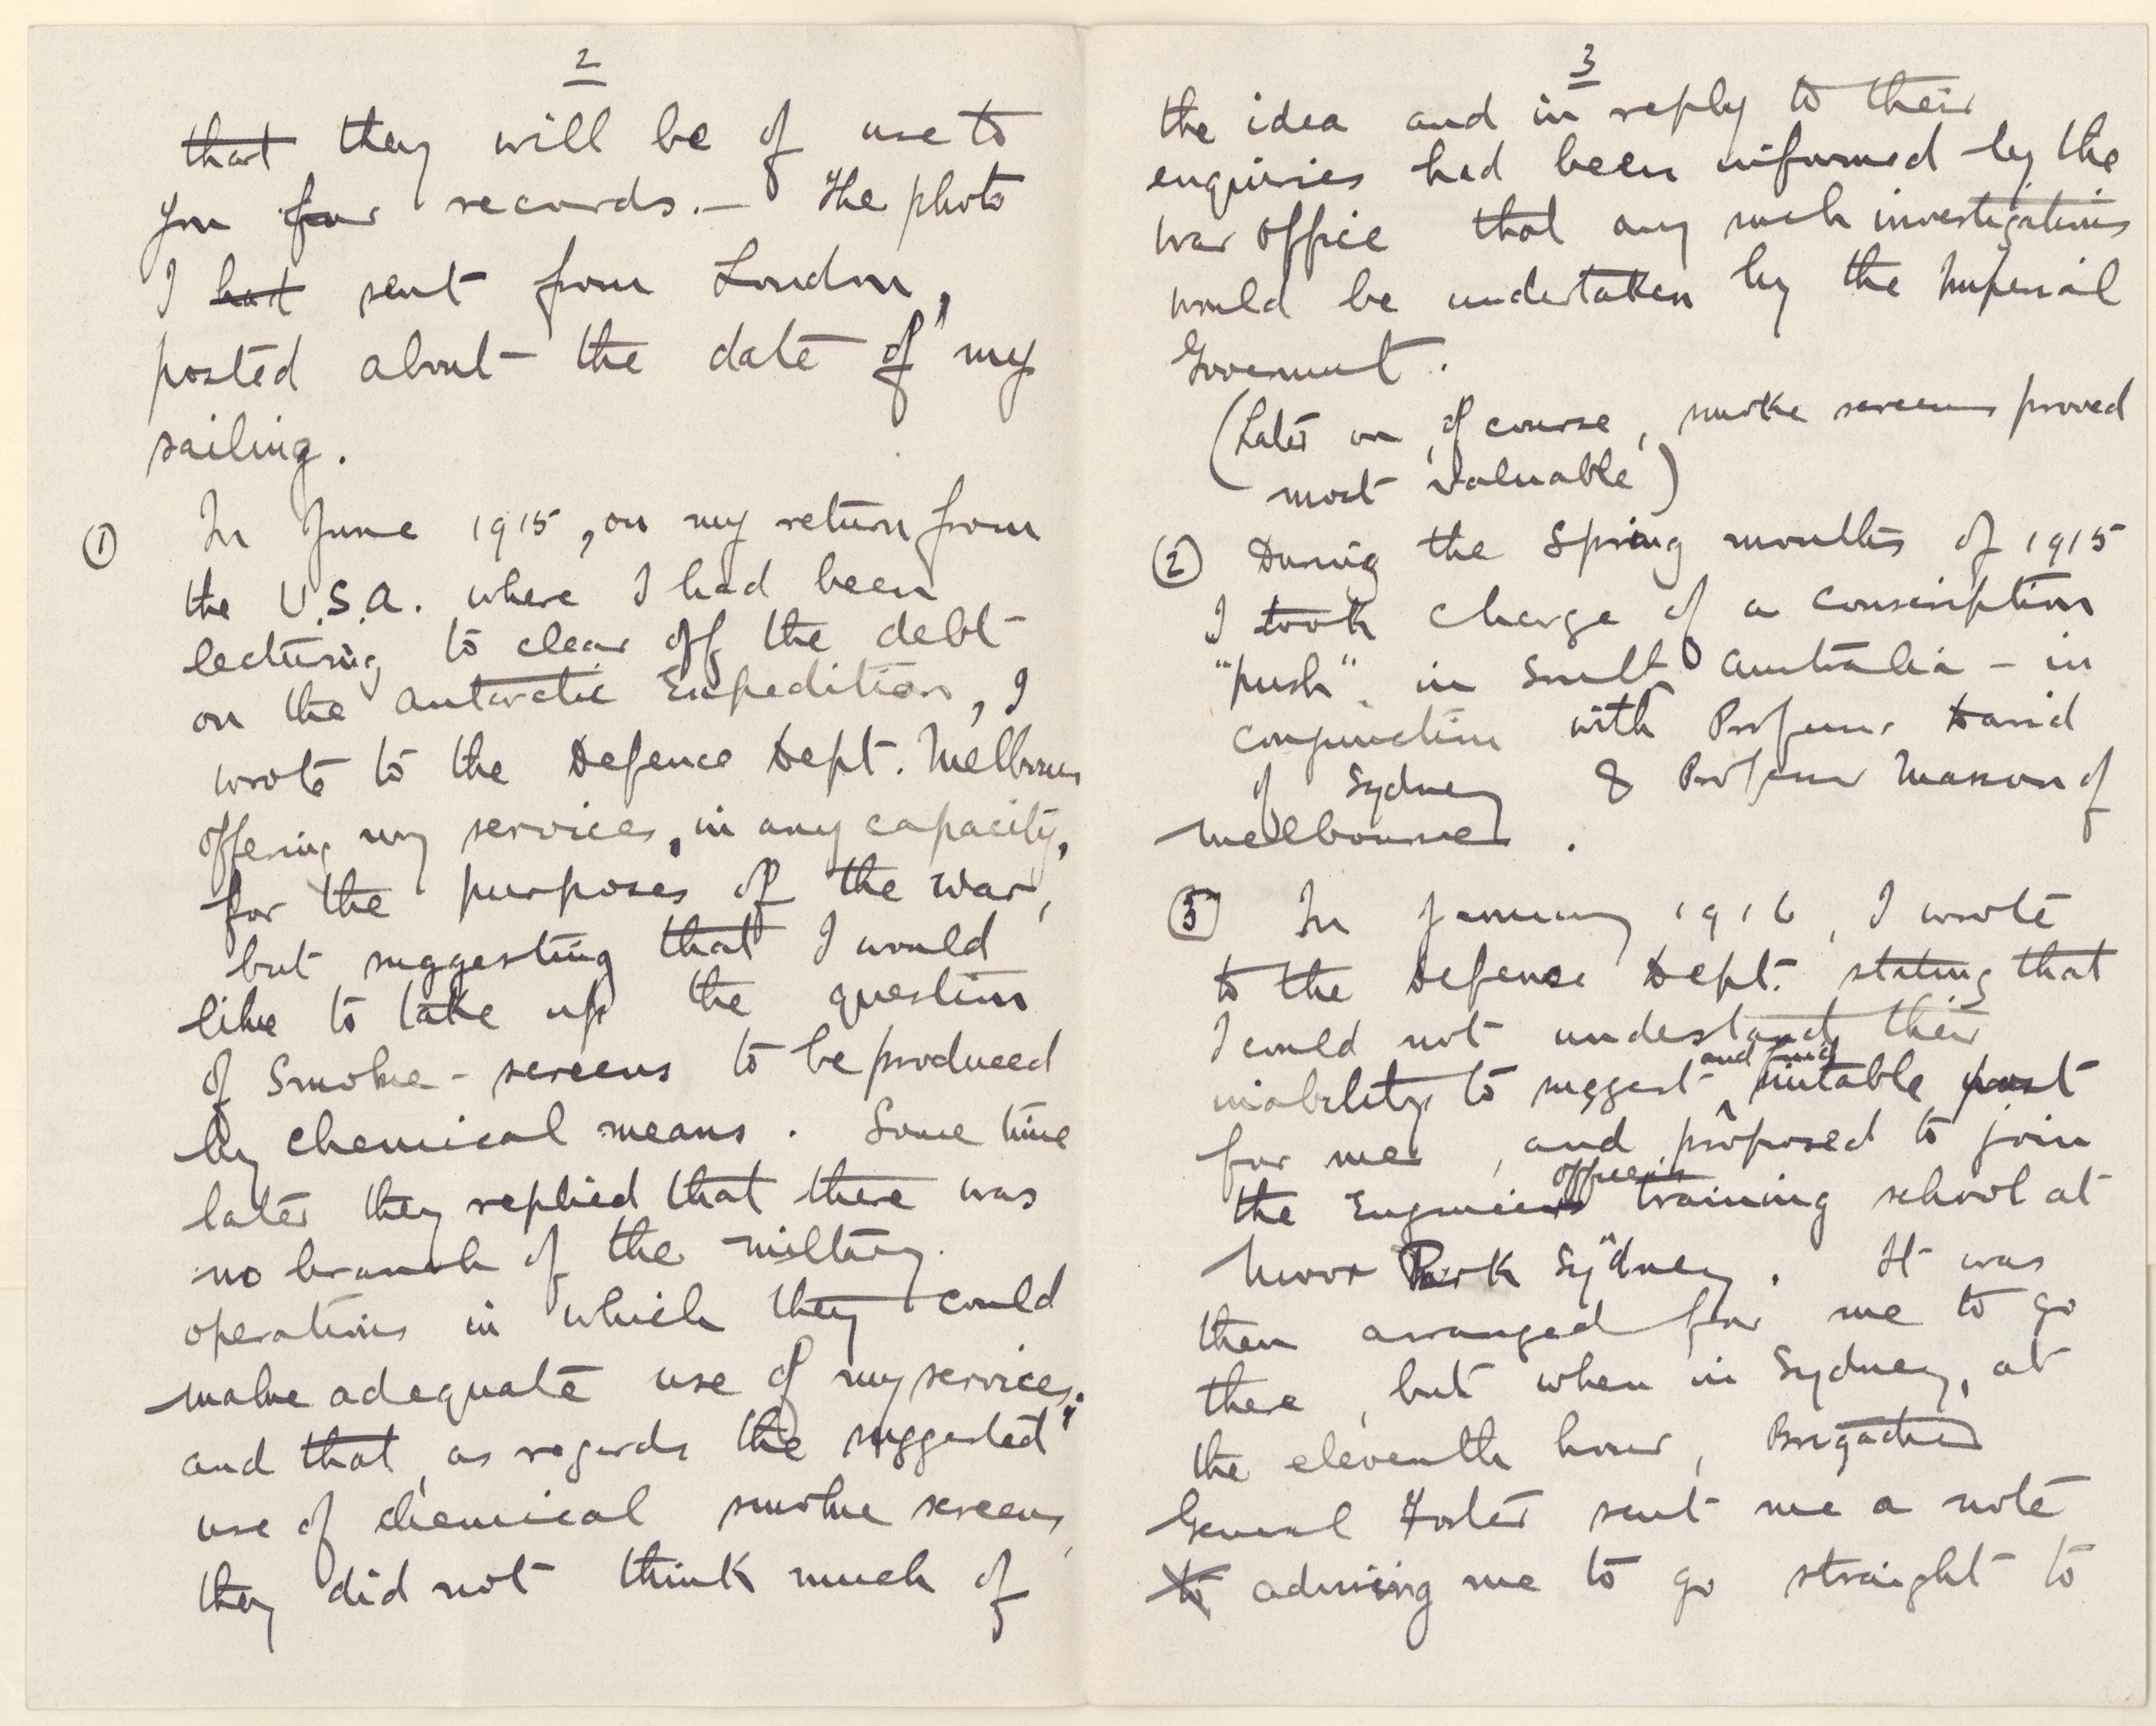 2
that they will be of use to
you for records. — The photo
I had sent from London,
posted about the date of my
sailing.
① In June 1915, on my return from
the U.S.A. where I had been
lecturing to clear off the debt
on the Antarctic Expedition, I
wrote to the Defence Dept. Melbourne
offering my services, in any capacity,
for the purposes of the war,
but suggesting that I would
like to take up the question
of Smoke-screens to be produced
by chemical means. Some time
later they replied that there was
no branch of the military
operations in which they could
make adequate use of my services.
and that, as regards the suggested
use of chemical smoke screens,
they did not think much of
3
the idea and in reply to their
enquiries had been informed by the
War Office that any such investigations
would be undertaken by the Imperial
Goverment.
(Later on, of course, smoke screens proved
most valuable)
② During the Spring months of 1915
I took charge of a conscription
"push" in South Australia - in
conjunction with Professor David
of Sydney & Professor Masson of
Melbourne.
③ In January 1916, I wrote
to the Defence Dept. stating that
I could not understand their
inability to suggest and find suitable post
for me, and proposed to join
the Engineers officers training school at
Moor Park Sydney. It was
then arranged for me to go
there, but when in Sydney, at
the eleventh hour, Brigadier
General Foster sent me a note
to advising me to go straight to